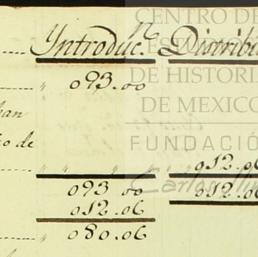 Introduc.n Distribu
" 093.00
han
o de
" " " " 012.06
093 00 012.06
012.06
" 080.06
CENTRO DE
DE HISTORI
DE MEXICO
FUNDACIÓ
Carlos